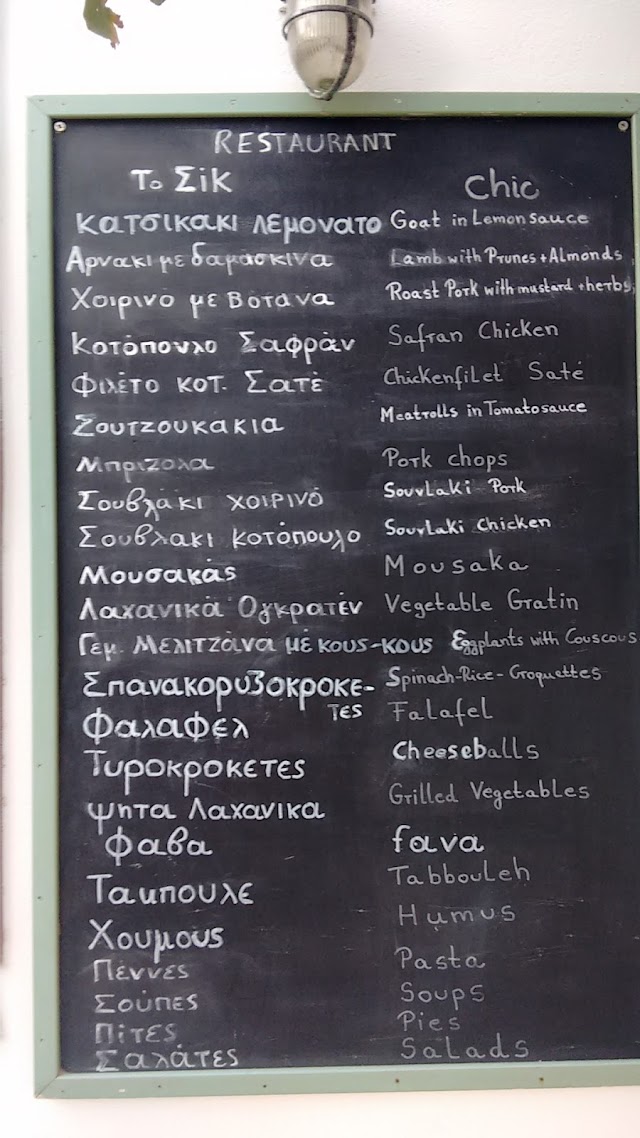 RESTAURANT
Το Σικ Chic
κατσικακι λεμονατο Goat in Lemonsauce
Αρνακι με δαμασκινα Lamb with Prunes + Almonds
Χοιρινο με Βοτανα Roast Pork with mustard + herbs
Κοτόπουλο Σαφράν Safran Chicken
Φιλέτο κοτ. Σατέ Chickenfilet Saté
Ζουτζουκακια Meatrolls in Tomatosauce
Μπριζολα Pork chops
Σουβλάκι χοιρινό Souvlaki Pork
Σουβλακι κοτόπουλο Souvlaki Chicken
Μουσακάς Mousaka
Λαχανικά Ογκρατέν Vegetable Gratin
Γεμ. Μελιτζάνα μέ κους-κους Eggplants with Couscous
Σπανακορυζοκροκε- Spinach-Rice-Croquettes
τες
Φαλαφελ Falafel
Τυροκροκετες Cheeseballs
ψητα Λαχανικα Grilled Vegetables
Φαβα fava
Ταμπουλε Tabbouleh
Χουμους Humus
Πέννες Pasta
Σούπες Soups
Πίτες Pies
Σαλάτες Salads